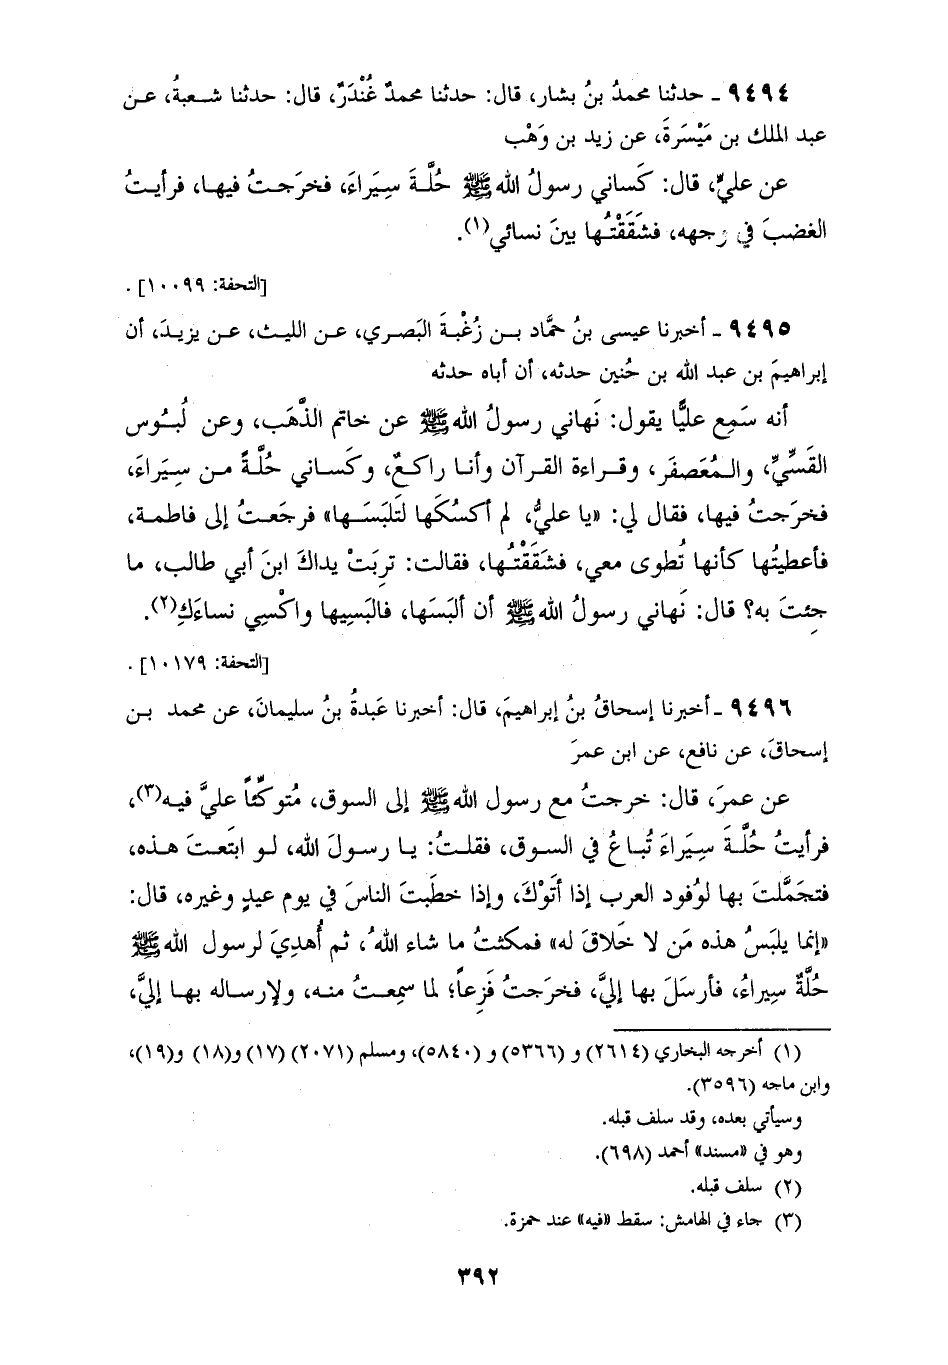 ٩٤٩٤ ـ حدثنا محمدُ بنُ بشار، قال: حدثنا محمدٌ غُنْدَرٌ، قال: حدثنا شعبةُ، عن
عبد الملك بن مَيْسَرةَ، عن زيد بن وَهْب
عن عليٍّ، قال: كَساني رسولُ الله ﷺ حُلَّةَ سِيَراءَ، فخرَجتُ فيها، فرأيتُ
الغضبَ في وجهه، فشَقَقْتُها بينَ نسائي(١).
[التحفة: ١٠٠٩٩].
٩٤٩٥ ـ أخبرنا عيسى بنُ حمَّاد بن زُغْبةَ البَصري، عن الليث، عن يزيدَ، أن
إبراهيمَ بن عبد الله بن حُنين حدثه، أن أباه حدثه
أنه سَمِع عليًّا يقول: نَهاني رسولُ الله ﷺ عن خاتم الذَّهَب، وعن لُبُوس
القَسِّيِّ، والمُعَصفَر، وقراءة القرآن وأنا راكعٌ، وكَساني حُلَّةً من سِيَراءَ،
فخرَجتُ فيها، فقال لي: «يا عليُّ، لم أكسُكَها لتَلبَسَها» فرجَعتُ إلى فاطمة،
فأعطيتُها كأنها تُطوى معي، فشَقَقْتُها، فقالت: ترِبَتْ يداكَ ابنَ أبي طالب، ما
جِئتَ به؟ قال: نَهاني رسولُ الله ﷺ أن ألبَسَها، فالبَسِيها واكْسِي نساءَكِ(٢).
[التحفة: ١٠١٧٩].
٩٤٩٦ ـ أخبرنا إسحاقُ بنُ إبراهيمَ، قال: أخبرنا عَبدةُ بنُ سليمانَ، عن محمد بن
إسحاقَ، عن نافع، عن ابن عمرَ
عن عمرَ، قال: خرجتُ مع رسول الله ﷺ إلى السوق، مُتوكِّئاً عليَّ فيه(٣)،
فرأيتُ حُلَّةَ سِيَراءَ تُباعُ في السوق، فقلتُ: يا رسولَ الله، لو ابتَعتَ هذه،
فتجَمَّلتَ بها لوُفود العرب إذا أتَوْكَ، وإذا خطَبتَ الناسَ في يوم عيدٍ وغيره، قال:
«إنما يلبَسُ هذه مَن لا خَلاقَ له» فمكثتُ ما شاء اللهُ، ثم أُهدِيَ لرسول الله ﷺ
حُلَّةٌ سِيراءُ، فأرسَلَ بها إليَّ، فخرَجتُ فَزِعاً؛ لما سمِعتُ منه، ولإرساله بها إليَّ،
(١) أخرجه البخاري (٢٦١٤) و (٥٣٦٦) و (٥٨٤٠)، ومسلم (٢٠٧١) (١٧) و(١٨) و(١٩)،
وابن ماجه (٣٥٩٦).
وسيأتي بعده، وقد سلف قبله.
وهو في «مسند» أحمد (٦٩٨).
(٢) سلف قبله.
(٣) جاء في الهامش: سقط «فيه» عند حمزة.
٣٩٢